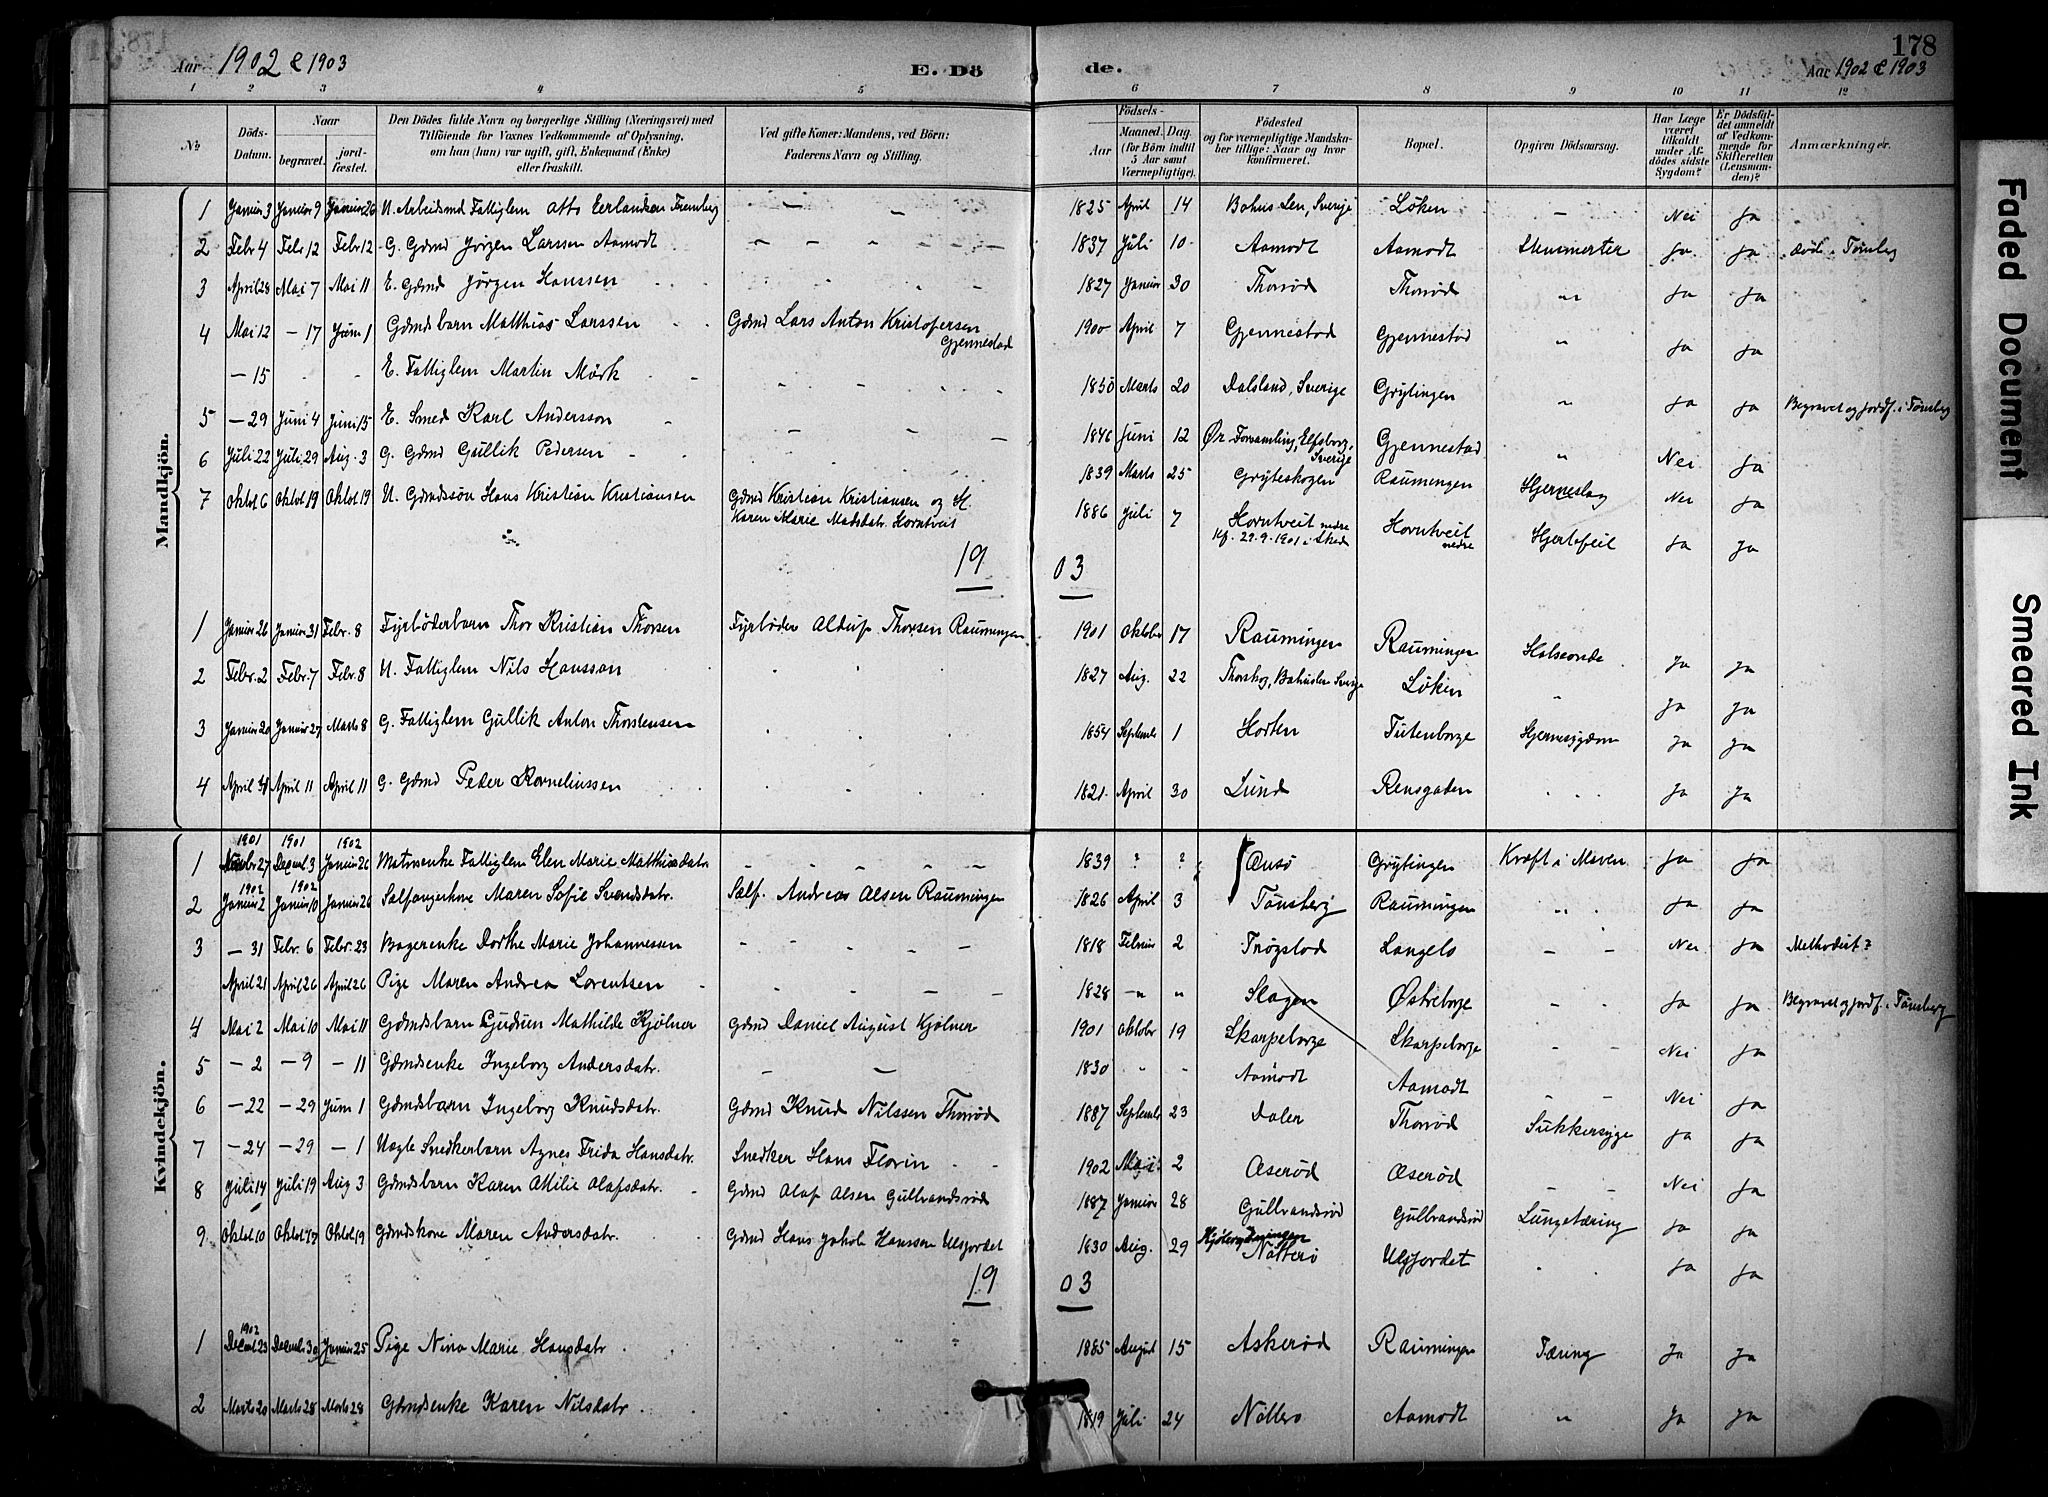 178
Aar 1902 & 1903 E. Dö de. Aar 1902 & 1903
1 2 3 4 5 6 7 8 9 10 11 12
№ Döds-Datum. Naar begravet. jord-fæstet. Den Dödes fulde Navn og borgerlige Stilling (Næringsvei) med Tilföiende for Voxnes Vedkommende af Oplysning, om han (hun) var ugift, gift, Enkemand (Enke) eller fraskilt. Ved gifte Koner: Mandens, ved Börn: Faderens Navn og Stilling. Födsels- Aar Maaned. Dag. (for Börn indtil 5 Aar samt Værnepligtige). Födested og for værnepligtige Mandska-ber tillige: Naar og hvor konfirmeret. Bopæl. Opgiven Dödsaarsag. Har Læge været tilkaldt under Af-dödes sidste Sygdom? Er Dödsfal-det anmeldt af Vedkom-mende for Skifteretten (Lensman-den)? Anmærkninger.
Mandkjön.
1 Januar 3 Januar 9 Januar 26 U. Arbeidsmd Fattiglem Otto Eerlandsen – – 1825 April 14 Bohus Len, Sverige Løken – Nei Ja
2 Febr 4 Febr 12 Febr 12 G. Gdmd Jörgen Larssen Aamodt – – – – 1837 Juli 10 Aamodt Aamodt Ja Ja död i Tönsberg
3 April 28 Mai 7 Mai 11 E. Gdmd Jørgen Hanssen 1827 Januar 30 Thorød Thorød " Ja Ja
4 Mai 12 – 17 Juni 1 Gdmdsbarn Matthias Larssen Gdmd Lars Anton Kristofersen Gjennestad 1900 April 7 Gjennestad Gjennestad " Ja Ja
– 15 - - E. Fattiglem Martin Mørk 1850 Marts 20 Dalsland, Sverige Grytingen " Ja Ja Begravet og jordf. i Tönsberg
5 – 29 Juni 4 Juni 15 E. Smed Karl Andersson 1846 Juni 12 Ør Forsamling, Elfsborg, Sverige Gjennestad " Nei Ja
6 Juli 22 Juli 29 Aug. 3 G. Gdmd Gullik Pedersen 1839 Marts 25 Gryteskogen Raumingen Hjerneslag Nei Ja
7 Oktob 6 Oktob 19 Oktob 19 U. Gdmdssön Hans Kristian Kristiansen Gdmd Kristian Kristiansen og H. Karen Marie Madsdatr. Horntveit 1886 Juli 7 Horntveit nedre Kf. 29.9.1901 i Sked Horntveit nedre Hjertefeil Ja Ja
19 03
1 Januar 26 Januar 31 Febr. 8 Fyrbøderbarn Thor Kristian Thorsen Fyrbøder Thorsen Raumingen 1901 Oktober 17 Raumingen Raumingen Halsonde Ja Ja
2 Febr. 2 Febr. 7 Febr. 8 U. Fattiglem Nils Hansson 1827 Aug. 22 Thorskog, Bahuslen Sverige Løken " Ja Ja
3 Januar 20 Januar 27 Marts 8 G. Fattiglem Gullik Anton Thorstensen 1854 September 1 Horten Tutenborge Hjernesygdom Ja Ja
4 April April 11 April 11 G. Gdmd Peder Korneliussen 1821 April 30 Lund Rensgaden Ja Ja
Kvindekjön.
1901 1901 1902
1 27 Decemb 3 Januar 26 Matrosenke Fattiglem Elen Marie Matthiasdatr – – – – 1839 ? ? Onsø Grytingen Kræft i Maven Ja Ja
1902 1902
2 Januar 2 Januar 10 Januar 26 Sælfangerkone Maren Sofie Svendsdatr. Sælf. Andreas Olsen Raumingen 1826 April 3 Tønsberg Raumingen Ja Ja
3 – 31 Febr. 6 Febr. 23 Bagerenke Dorthe Marie Johannessen – – – – 1818 Februar 2 Trøgstad Langelo – – Nei Ja Methodist?
April 21 April 26 April 26 Pige Maren Andrea Lorentsen 1828 – " " Slagen Østreborge Ja Ja Begravet og jordf. i Tønsberg
4 Mai 2 Mai 10 Mai 11 Gdmdsbarn Gudrun Mathilde Kjølner Gdmd Daniel August Kjølner 1901 Oktober 19 Skarpeborge Skarpeborge Nei Ja
5 – 2 – 9 – 11 Gdmdsenke Ingeborg Andersdatr. – – 1830 Aamodt Aamodt Nei Ja
6 – 22 – 29 Juni 1 Gdmdsbarn Ingeborg Knudsdatr. Gdmd Knud Nilssen Thorrød 1887 September 23 Dalen Thorrød Sukkersyge Ja Ja
7 – 24 – 29 – 1 Uægte Snedkerbarn Agnes Frida Hansdatr. Snedker Hans Florin 1902 Mai 2 Æserød Æserød – – Nei Ja
8 Juli 14 Juli 19 Aug 3 Gdmdsbarn Karen Attilie Olafsdatr. Gdmd Olaf Olsen Gullbrandsrød 1887 Januar 28 Gullbrandsrød Gullbrandsrød Lungetæring Ja Ja
9 Oktob 10 Oktob 17 Oktob 19 Gdmdskone Maren Andersdatr. Gdmd Hans Jakob Hanssen Ulgjordet 1830 Aug. 29 Nötterö Ulgjordet Ja Ja
19 03
1902
1 Decemb 23 Decemb 30 Januar 25 Pige Nina Marie Hansdatr 1885 August 15 Askerød Raumingen Tæring Ja Ja
2 Marts 20 Marts 28 Marts 28 Gdmdsenke Karen Nilsdatr. 1819 Juli 24 Nøtterø Aamodt " Ja Ja
Faded Document
Smeared Ink